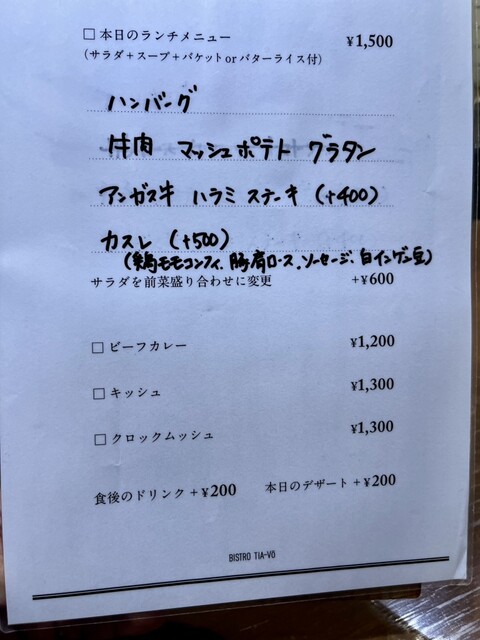 □ 本日のランチメニュー ¥1,500
(サラダ+スープ+バケットorバターライス付)
ハンバーグ
牛肉 マッシュポテト グラタン
アンガス牛 ハラミ ステーキ (+400)
カスレ (+500)
(鶏モモコンフィ、豚肩ロース、ソーセージ、白インゲン豆)
サラダを前菜盛り合わせに変更 +¥600
□ ビーフカレー ¥1,200
□ キッシュ ¥1,300
□ クロックムッシュ ¥1,300
食後のドリンク +¥200 本日のデザート +¥200
BISTRO TIA-VÖ